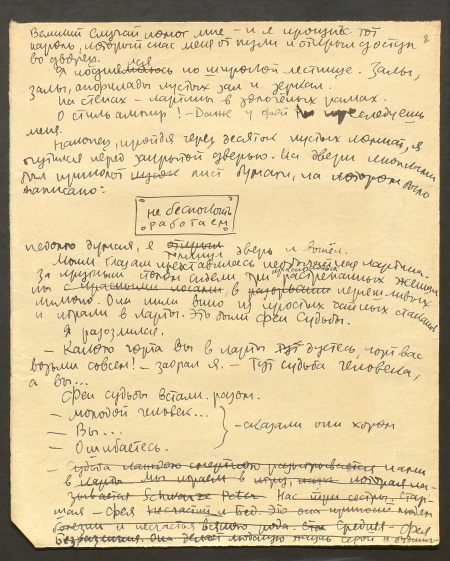 Великий Случай помог мне – и я произнёс тот
пароль, который спас меня от пули и открыл доступ
во дворец.
Я поднялся по широкой лестнице. Залы,
залы, анфилады пустых зал и зеркал.
На стенах – картины в золочёных рамах.
О стиль ампир! – Даже у фей ты преследуешь
меня.
Наконец, пройдя через десяток пустых комнат, я
очутился перед закрытой дверью. На двери кнопками
был приколот лист бумаги, на котором было
написано:
не беспокоить
работаем
Недолго думая, я дверь и вошёл.
Моим глазам представилась необычайная картина.
За круглым столом сидели три растрёпанных женщины
с красными носами, в неряшливых
кимоно. Они пили вино из простых чайных стаканов
и играли в карты. Это были феи Судьбы.
Я разозлился.
– Какого чорта вы в карты дуетесь, чорт вас
возьми совсем! – заорал я. – Тут судьба человека,
а вы...
Феи судьбы встали разом.
– Молодой человек...
– Вы...
– Ошибаетесь.
– сказали они хором
– Судьба каждого смертного разыгрывается нами
в карты. Мы играем в игру, которая на-
зывается Schwarze Peter. Нас три сестры. Стар-
шая – фея Несчастий и Бед. Это она приносит людям
болезни и несчастья всякого рода. Средняя – фея
Безразличия. Она делает людскую жизнь серой и
8